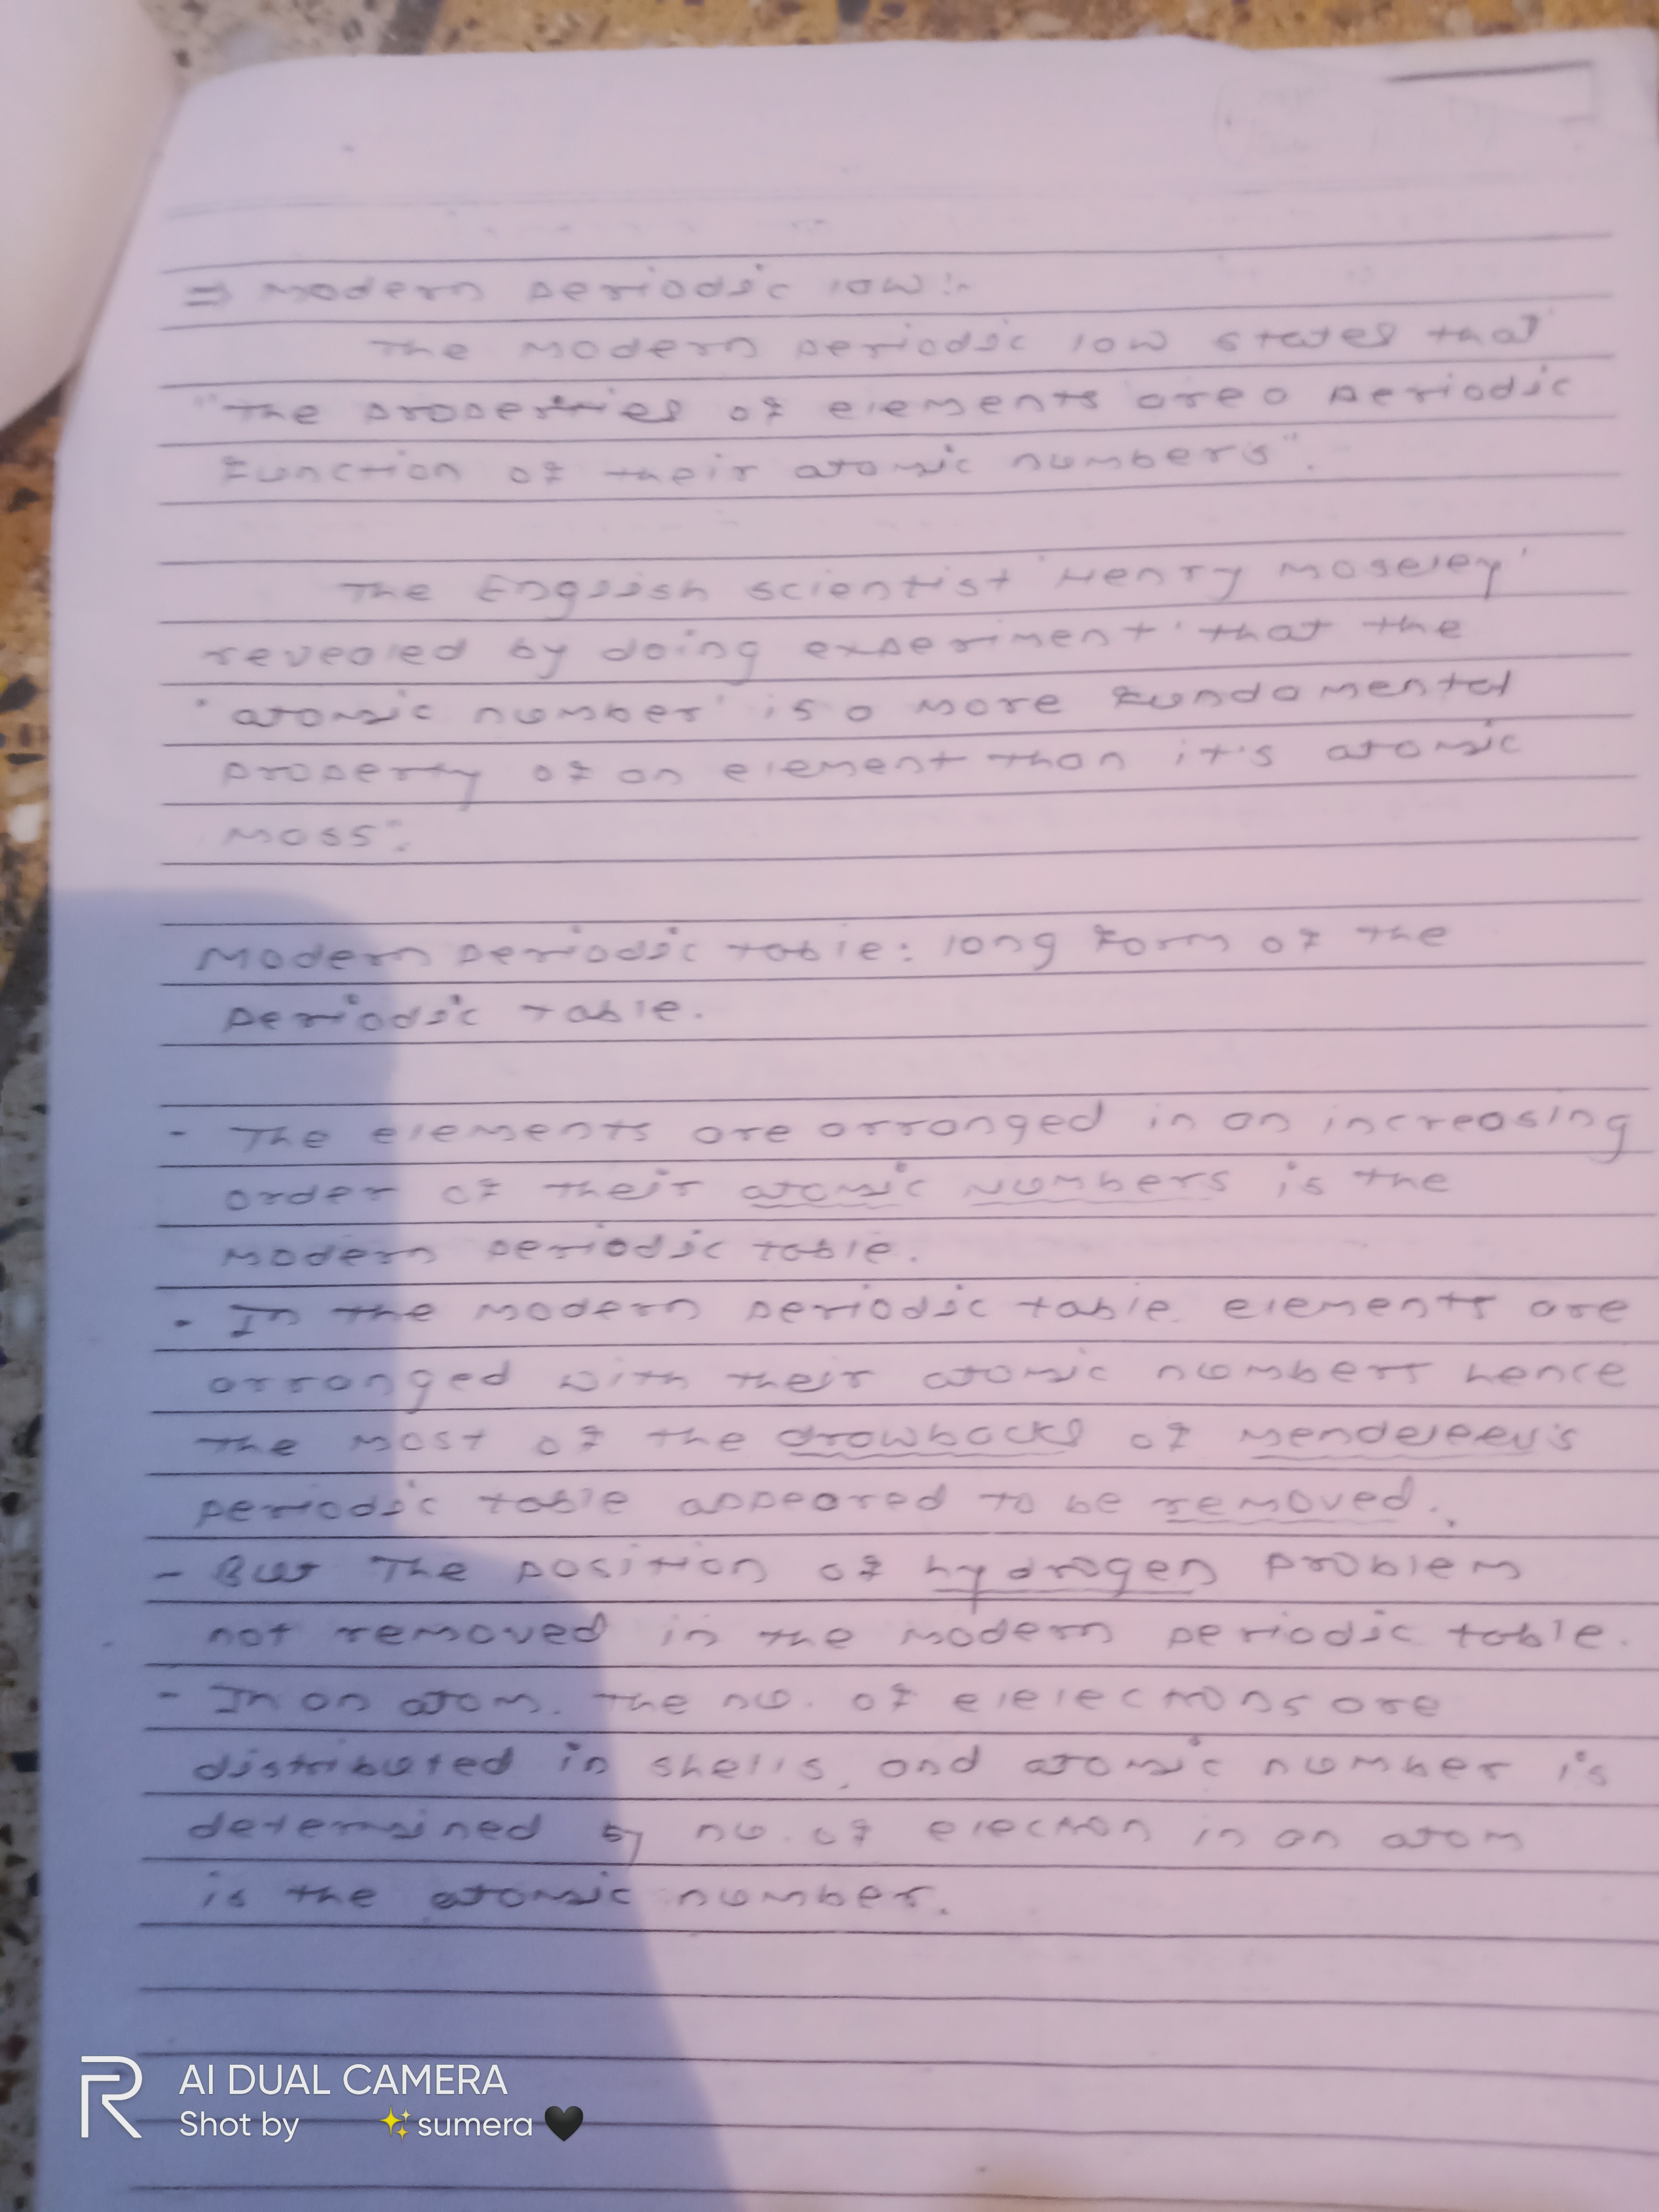 ⇒ Modern periodic law :-
The Modern periodic law states that
"The properties of elements are a periodic
function of their atomic numbers".
The English scientist 'Henry Moseley'
revealed by doing experiment 'that the
'atomic number' is a more fundamental
property of an element than it's atomic
mass".
Modern periodic table : long form of the
periodic table.
- The elements are arranged in an increasing
order of their atomic numbers is the
modern periodic table.
- In the modern periodic table elements are
arranged with their atomic numbers hence
the most of the drawbacks of Mendeleev's
periodic table appeared to be removed.
- But The position of hydrogen problem
not removed in the modern periodic table.
- In an atom. the no. of elelectrons are
distributed in shells, and atomic number is
determined by no. of electron in an atom
is the atomic number.
R AI DUAL CAMERA
Shot by ✨sumera🖤